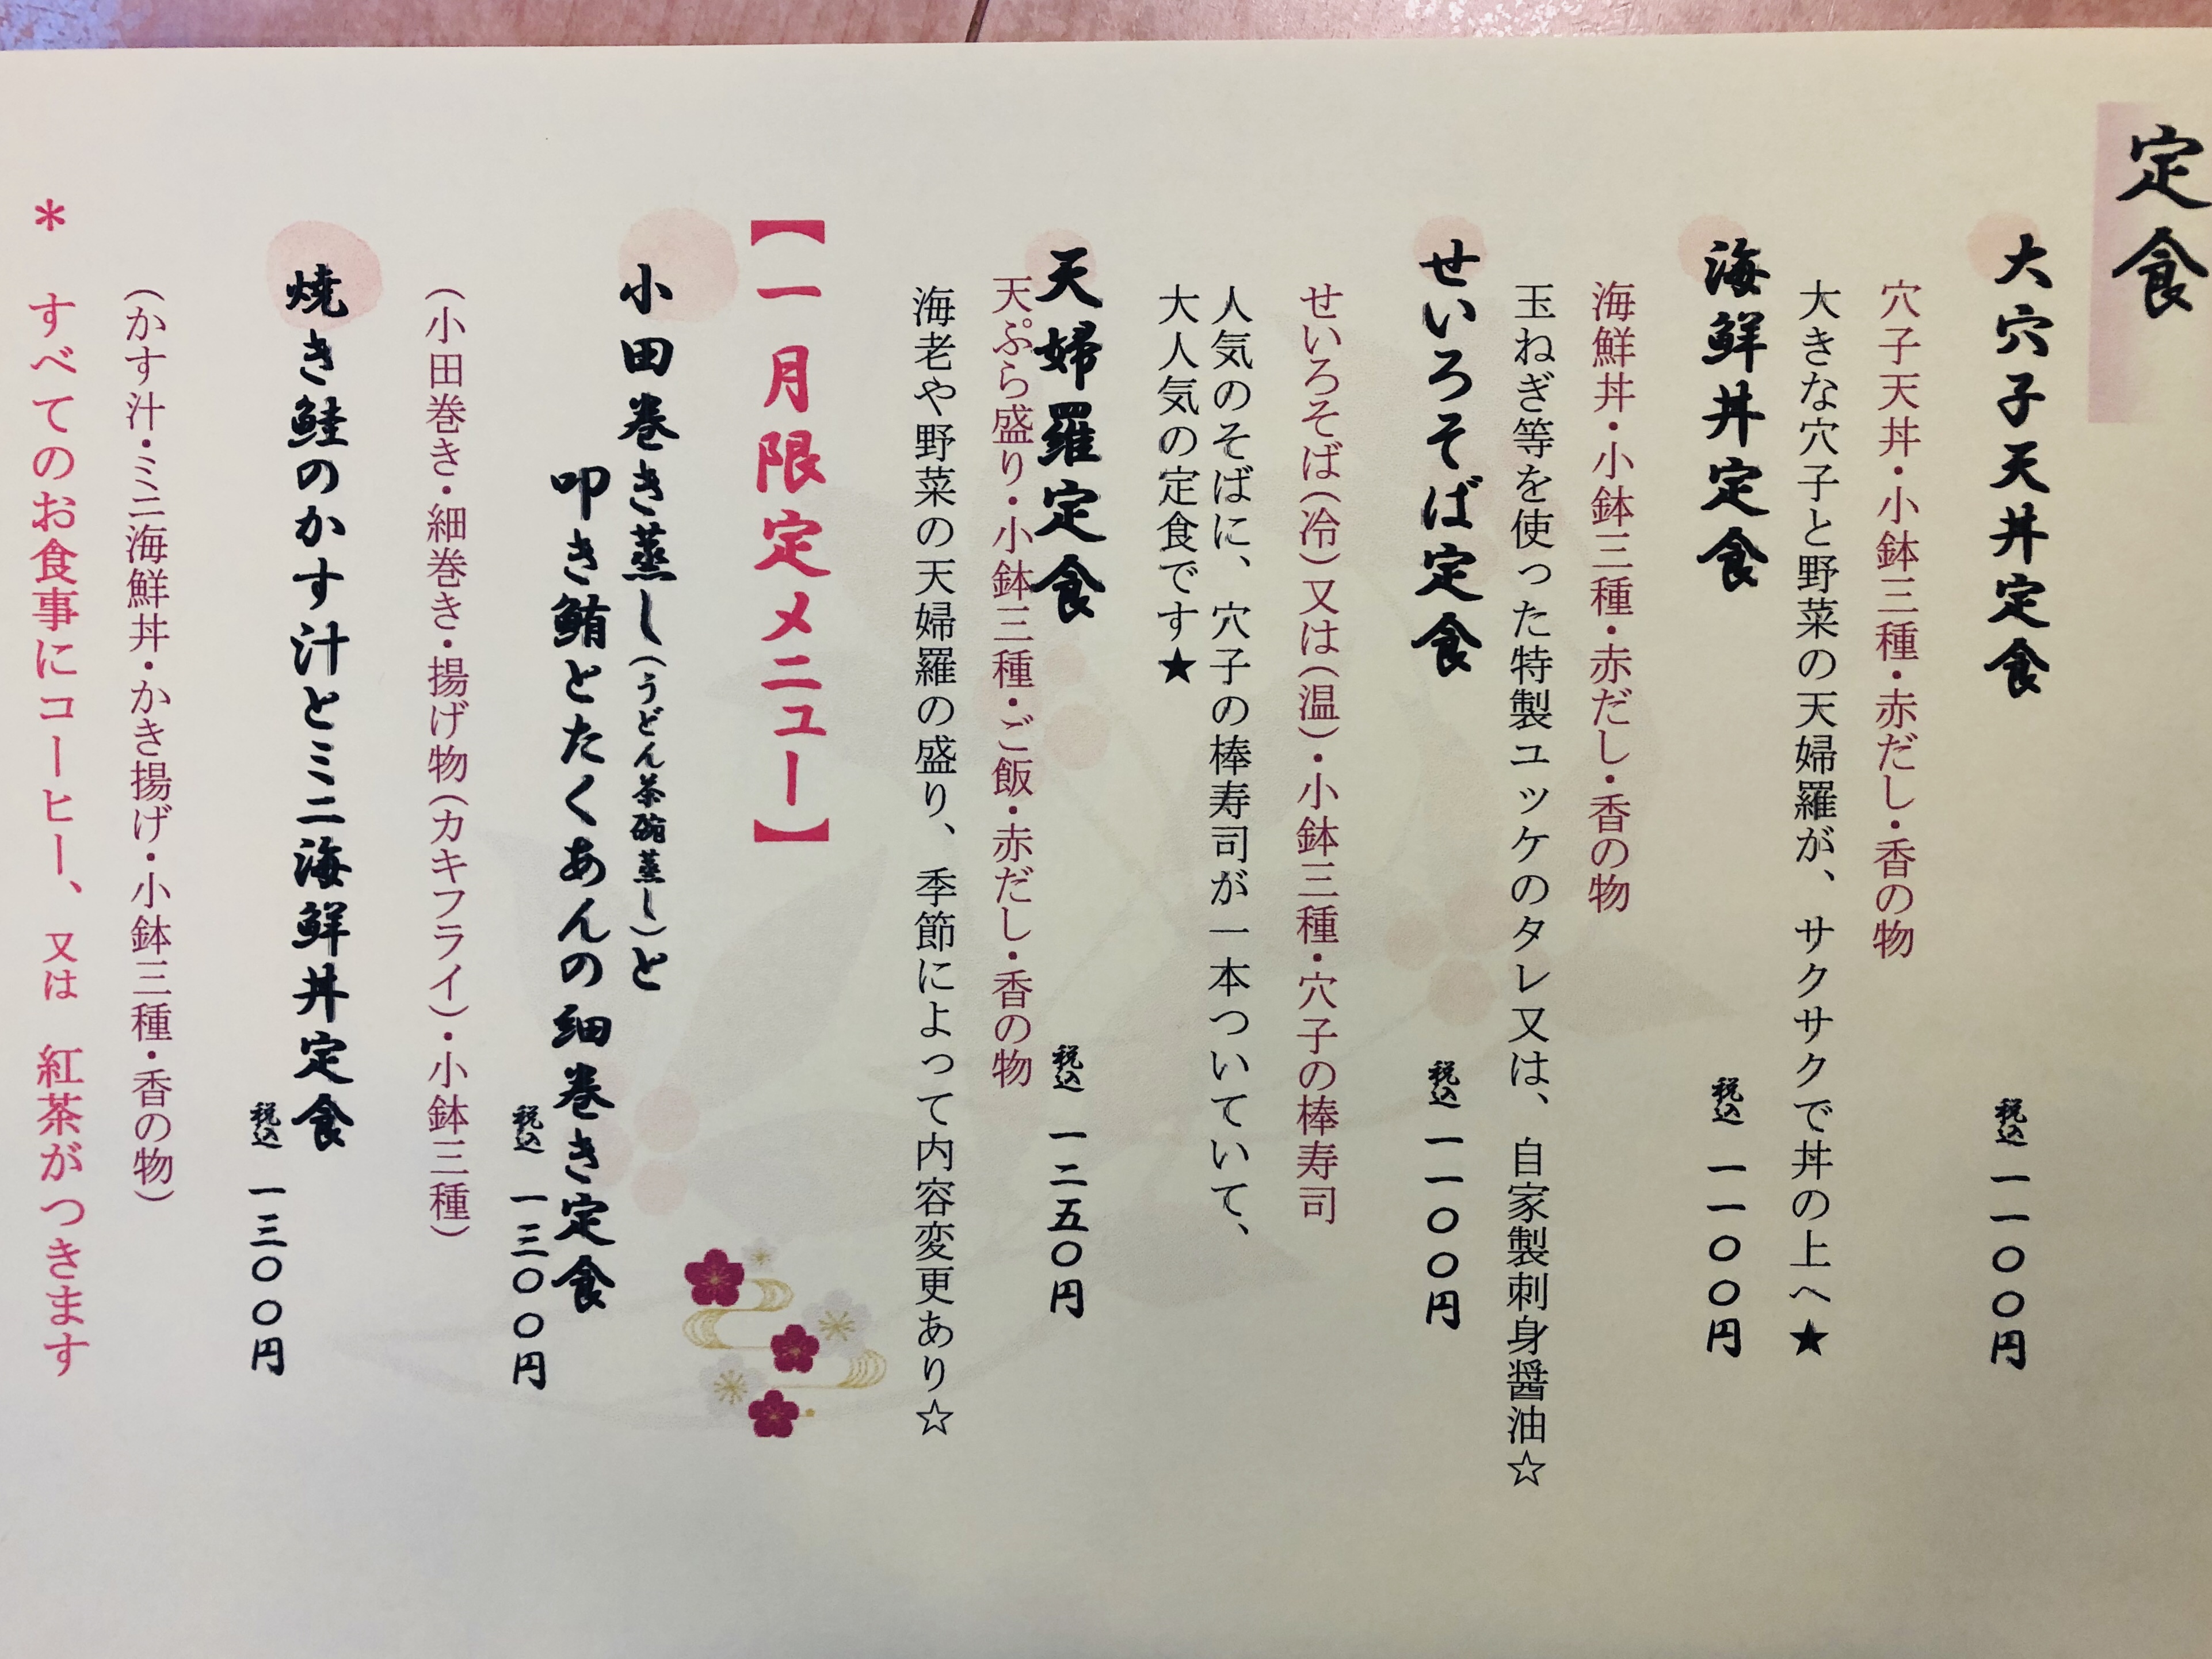 定食
大穴子天丼定食
税込 一一〇〇円
穴子天丼・小鉢三種・赤だし・香の物
大きな穴子と野菜の天婦羅が、サクサクで丼の上へ★
海鮮丼定食
税込 一一〇〇円
海鮮丼・小鉢三種・赤だし・香の物
玉ねぎ等を使った特製ユッケのタレ又は、自家製刺身醤油☆
せいろそば定食
税込 一一〇〇円
せいろそば(冷)又は(温)・小鉢三種・穴子の棒寿司
人気のそばに、穴子の棒寿司が一本ついていて、
大人気の定食です★
天婦羅定食
税込 一二五〇円
天ぷら盛り・小鉢三種・ご飯・赤だし・香の物
海老や野菜の天婦羅の盛り、季節によって内容変更あり☆
【一月限定メニュー】
小田巻き蒸し(うどん茶碗蒸し)と
叩き鮪とたくあんの細巻き定食
税込 一三〇〇円
(小田巻き・細巻き・揚げ物(カキフライ)・小鉢三種)
焼き鮭のかす汁とミニ海鮮丼定食
税込 一三〇〇円
(かす汁・ミニ海鮮丼・かき揚げ・小鉢三種・香の物)
＊ すべてのお食事にコーヒー、又は 紅茶がつきます